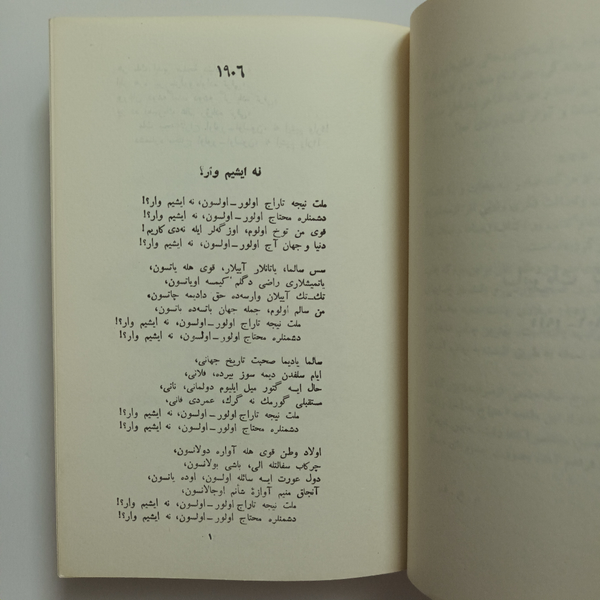 ۱۹۰٦
نه ایشیم وار!
ملت نیجه تاراج اولور ــ اولسون، نه ایشیم وار؟!
دشمنلره محتاج اولور ــ اولسون، نه ایشیم وار؟!
قوی من توخ اولوم، اوزگه‌لر ایله نه‌دی کاریم!
دنیا و جهان آج اولور ــ اولسون، نه ایشیم وار؟!
سس سالما، یاتانلار آییلار، قوی هله یاتسون،
یاتمیشلاری راضی دگلم کیمسه اویاتسون،
تک‌ــ‌تک آییلان وارسه‌ده حق دادیمه چاتسون،
من سالم اولوم، جمله جهان باتسه‌ده باتسون،
ملت نیجه تاراج اولور ــ اولسون، نه ایشیم وار؟!
دشمنلره محتاج اولور ــ اولسون، نه ایشیم وار؟!
سالما یادیما صحبت تاریخ جهانی،
ایام سلفدن دیمه سوز بیرده، فلانی،
حال ایسه گتور میل ایلیوم دولمانی، نانی،
مستقبلی گورمک نه گرک، عمردی فانی،
ملت نیجه تاراج اولور ــ اولسون، نه ایشیم وار؟!
دشمنلره محتاج اولور ــ اولسون، نه ایشیم وار؟!
اولاد وطن قوی هله آواره دولانسون،
چرکاب سفالتله الی، باشی بولانسون،
دول عورت ایسه سائله اولسون، اوده یانسون،
آنجاق منیم آوازهٔ شأنم اوجالانسون،
ملت نیجه تاراج اولور ــ اولسون، نه ایشیم وار؟!
دشمنلره محتاج اولور ــ اولسون، نه ایشیم وار؟!
۱